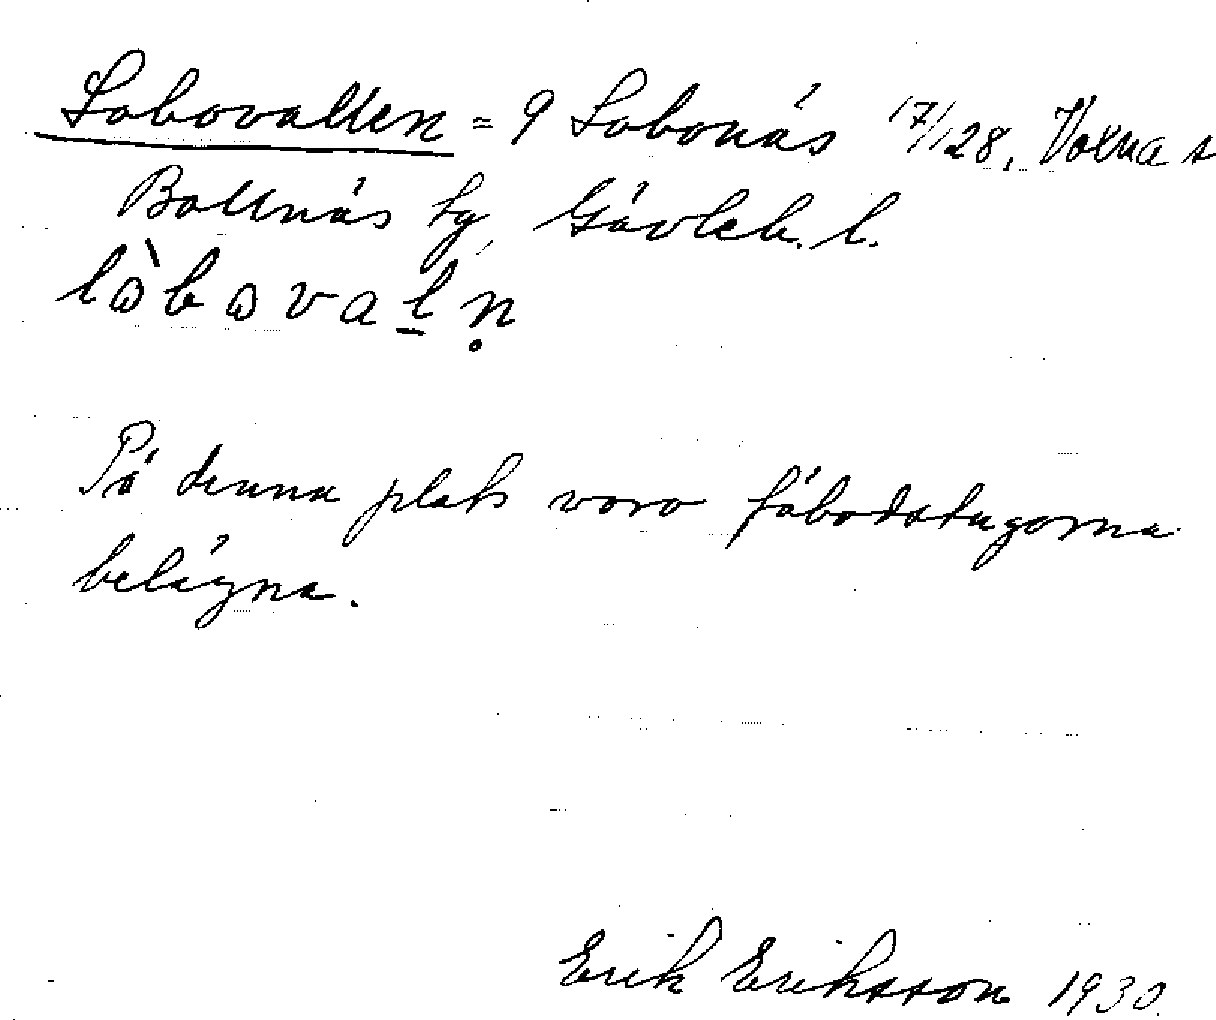 Lobovallen = 9 Lobonäs 17/128, Voxna s
Bollnäs tg Gävleb. l.
lòbovaḻṇ
På denna plats voro fäbodstugorna
belägna.
Erik Eriksson 1930.